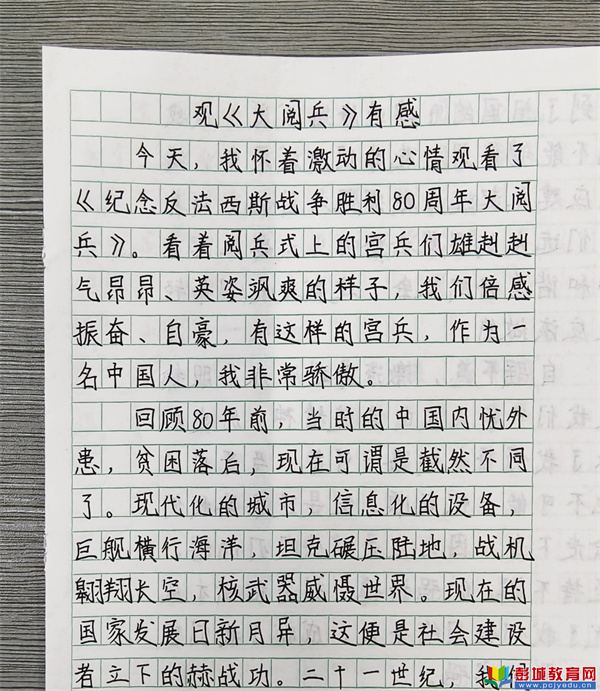 观《大阅兵》有感
今天，我怀着激动的心情观看了
《纪念反法西斯战争胜利80周年大阅
兵》。看着阅兵式上的宫兵们雄赳赳
气昂昂、英姿飒爽的样子，我们倍感
振奋、自豪，有这样的宫兵，作为一
名中国人，我非常骄傲。
回顾80年前，当时的中国内忧外
患，贫困落后，现在可谓是截然不同
了。现代化的城市，信息化的设备，
巨舰横行海洋，坦克碾压陆地，战机
翱翔长空，核武器威慑世界。现在的
国家发展日新月异 这便是社会建设
者立下的赫战功。二十一世纪，我们
彭城教育网
www.pcjyedu.cn